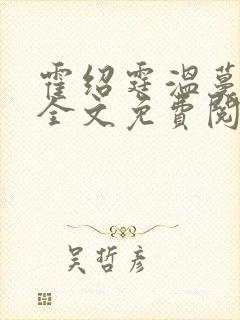 霍绍霆温蔓
全文免费阅
吴哲彦